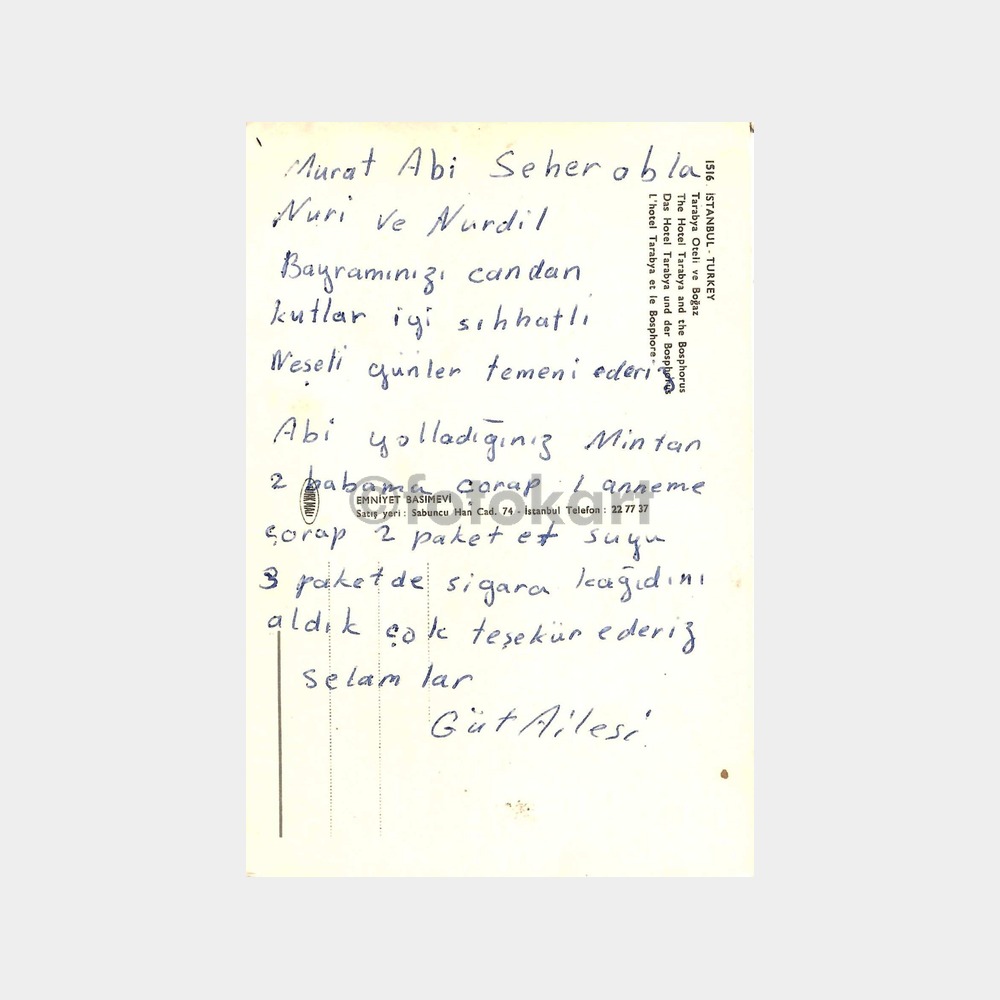 Murat Abi Seher abla
Nuri ve Nurdil
Bayramınızı candan
kutlar iyi sıhhatli
Neşeli günler temeni ederiz
Abi yolladığınız Mintan
2 babama çorap 1 anneme
çorap 2 paket et suyu
3 paketde sigara kağıdını
aldık çok teşekür ederiz
Selamlar
Güt Ailesi
1516. İSTANBUL - TURKEY
Tarabya Oteli ve Boğaz
The Hotel Tarabya and the Bosphorus
Das Hotel Tarabya und der Bosphorus
L'hotel Tarabya et le Bosphore-
EMNİYET BASIMEVİ
Satış yeri : Sabuncu Han Cad. 74 - İstanbul Telefon : 22 77 37
©fotokart